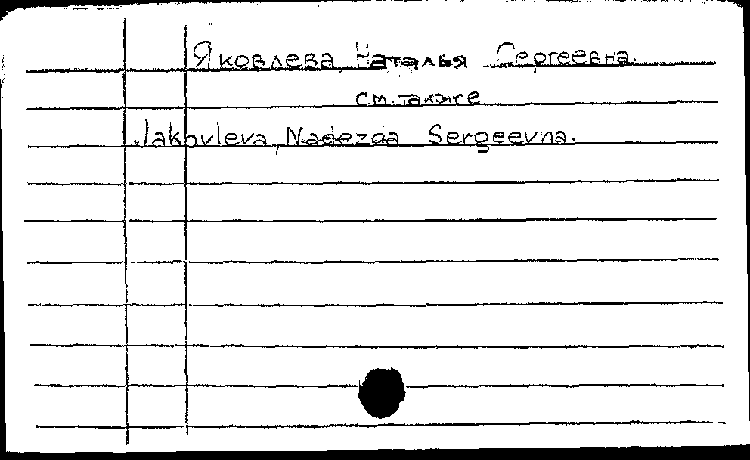 Яковлева, Наталья Сергеевна.
см. также
Jakovleva, Nadezda Sergeevna.